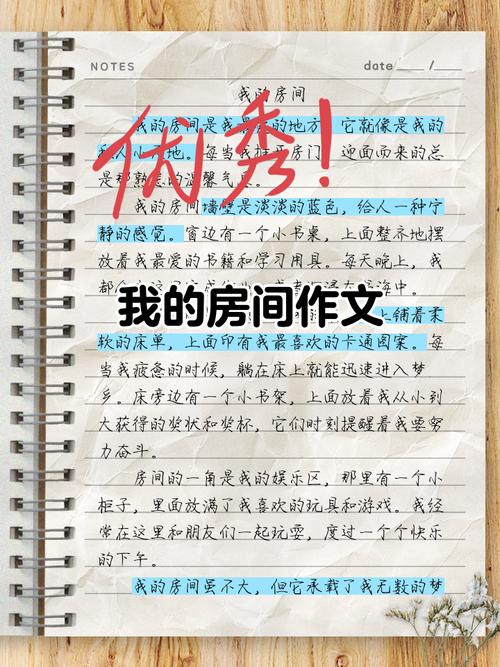 NOTES
date ___/__
我的房间
优秀！
我的房间是我最 的地方 它就像是我的
私人小 地。每当我 开房门 迎面而来的总
是那熟悉的温馨气息。
我的房间墙壁是淡淡的蓝色，给人一种宁
静的感觉。窗边有一个小书桌，上面整齐地摆
放着我最爱的书籍和学习用具。每天晚上，我
都 海中。
我的房间作文
上铺着柔
软的床单，上面印有我最喜欢的卡通图案。每
当我疲惫的时候，躺在床上就能迅速进入梦
乡。床旁边有一个小书架，上面放着我从小到
大获得的奖状和奖杯，它们时刻提醒着我要努
力奋斗。
房间的一角是我的娱乐区，那里有一个小
柜子，里面放满了我喜欢的玩具和游戏。我经
常在这里和朋友们一起玩耍，度过一个个快乐
的下午。
我的房间虽不大，但它承载了我无数的梦